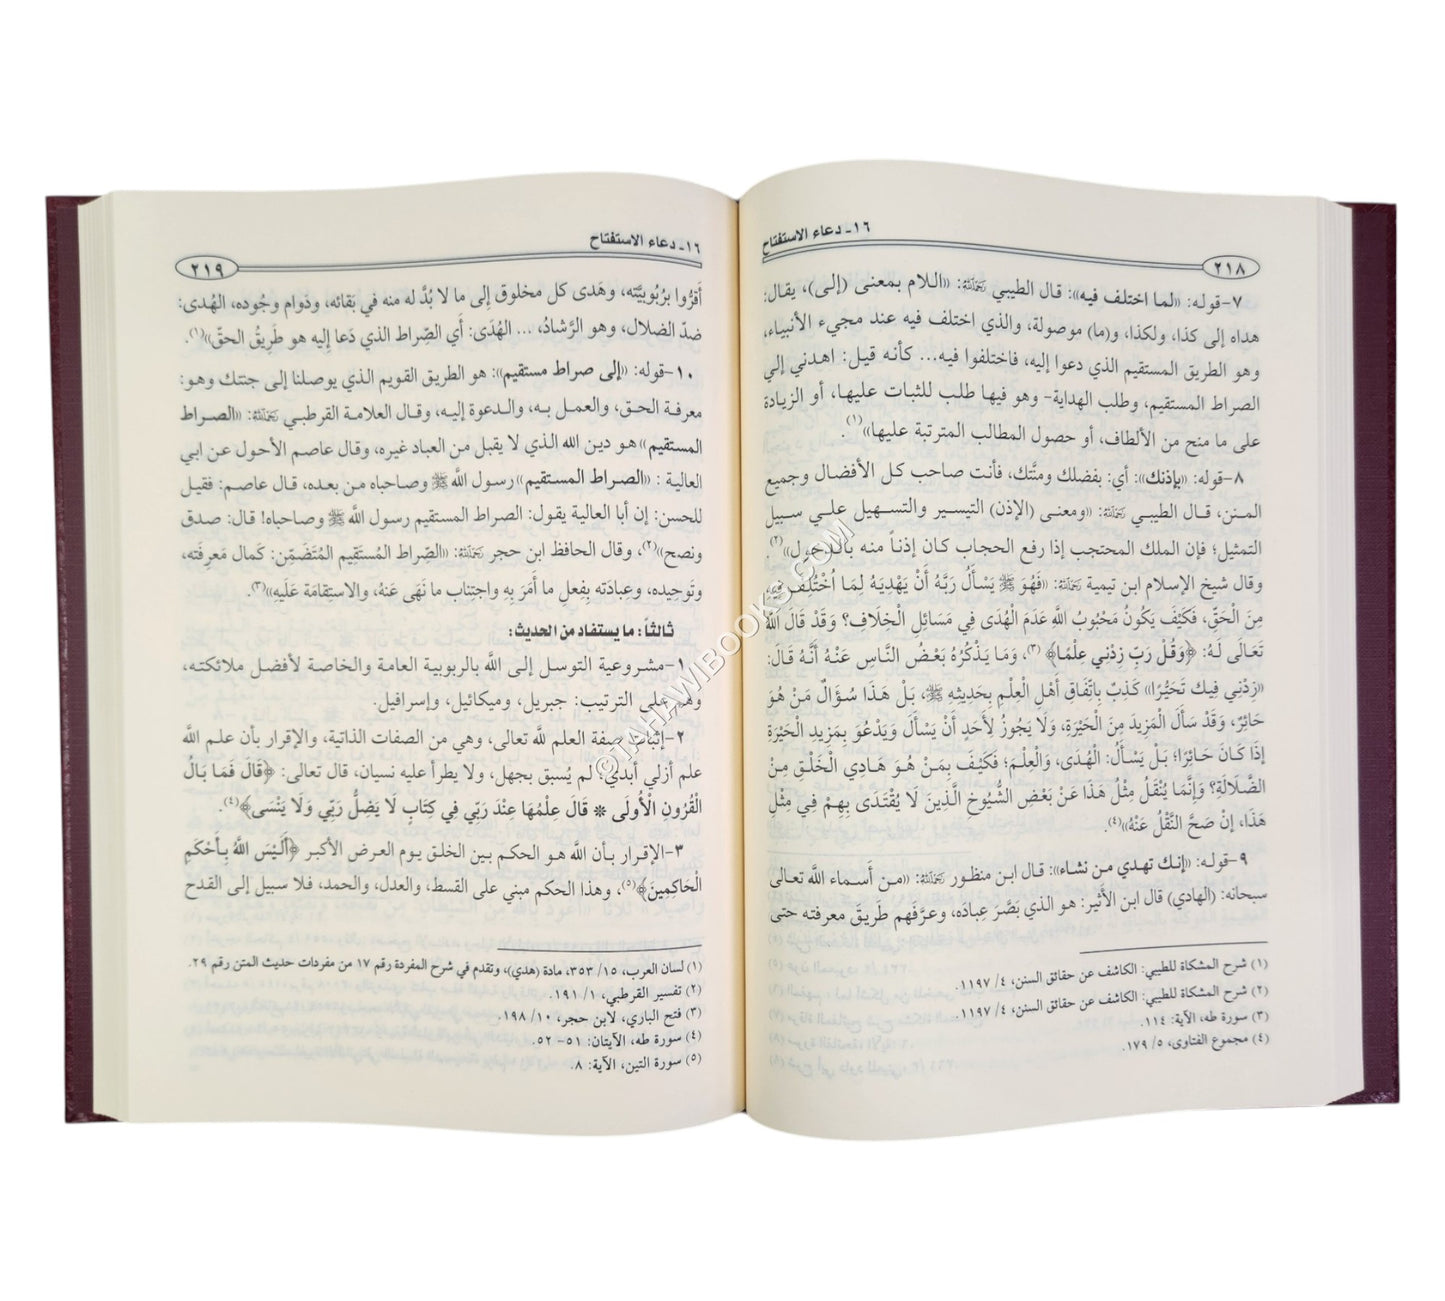 ١٦- دعاء الاستفتاح
٢١٨
٧-قوله: «لما اختلف فيه»: قال الطيبي رحمه الله: «اللام بمعنى (إلى)، يقال:
هداه إلى كذا، ولكذا، و(ما) موصولة، والذي اختلف فيه عند مجيء الأنبياء،
وهو الطريق المستقيم الذي دعوا إليه، فاختلفوا فيه... كأنه قيل: اهدني إلي
الصراط المستقيم، وطلب الهداية- وهو فيها طلب للثبات عليها، أو الزيادة
على ما منح من الألطاف، أو حصول المطالب المترتبة عليها»(١).
٨-قوله: «بإذنك»: أي: بفضلك ومنَّتك، فأنت صاحب كل الأفضال وجميع
المنن، قال الطيبي رحمه الله: «ومعنى (الإذن) التيسير والتسهيل علي سبيل
التمثيل؛ فإن الملك المحتجب إذا رفع الحجاب كان إذناً منه بالدخول»(٢).
وقال شيخ الإسلام ابن تيمية رحمه الله: «فَهُوَ ﷺ يَسْأَلُ رَبَّهُ أَنْ يَهْدِيَهُ لِمَا اُخْتُلِفَ فِيهِ
مِنَ الْحَقِّ، فَكَيْفَ يَكُونُ مَحْبُوبُ اللَّهِ عَدَمَ الْهُدَى فِي مَسَائِلِ الْخِلَافِ؟ وَقَدْ قَالَ اللَّهُ
تَعَالَى لَهُ: ﴿وَقُلْ رَبِّ زِدْنِي عِلْمًا﴾ (٣)، وَمَا يَذْكُرُهُ بَعْضُ النَّاسِ عَنْهُ أَنَّهُ قَالَ:
«زِدْنِي فِيك تَحَيُّرًا» كَذِبٌ بِاتِّفَاقِ أَهْلِ الْعِلْمِ بِحَدِيثِهِ ﷺ، بَلْ هَذَا سُؤَالُ مَنْ هُوَ
حَائِرٌ، وَقَدْ سَأَلَ الْمَزِيدَ مِنَ الْحَيْرَةِ، وَلَا يَجُوزُ لِأَحَدٍ أَنْ يَسْأَلَ وَيَدْعُوَ بِمَزِيدِ الْحَيْرَةِ
إذَا كَانَ حَائِرًا؛ بَلْ يَسْأَلُ: الْهُدَى، وَالْعِلْمَ؛ فَكَيْفَ بِمَنْ هُوَ هَادِي الْخَلْقِ مِنْ
الضَّلَالَةِ؟ وَإِنَّمَا يُنْقَلُ مِثْلُ هَذَا عَنْ بَعْضِ الشُّيُوخِ الَّذِينَ لَا يُقْتَدَى بِهِمْ فِي مِثْلِ
هَذَا، إنْ صَحَّ النَّقْلُ عَنْهُ»(٤).
٩-قوله: «إنك تهدي من تشاء»: قال ابن منظور رحمه الله: «من أَسماء الله تعالى
سبحانه: (الهادي) قال ابن الأَثير: هو الذي بَصَّرَ عِبادَه، وعرَّفَهم طَريقَ معرفته حتى
(١) شرح المشكاة للطيبي: الكاشف عن حقائق السنن، ٤/ ١١٩٧.
(٢) شرح المشكاة للطيبي: الكاشف عن حقائق السنن، ٤/ ١١٩٧.
(٣) سورة طه، الآية: ١١٤.
(٤) مجموع الفتاوى، ٥/ ١٧٩.
١٦- دعاء الاستفتاح
٢١٩
أَقرُّوا برُبُوبيَّته، وهَدى كل مخلوق إلى ما لا بُدَّ له منه في بَقائه، ودَوام وجُوده، الهُدى:
ضدّ الضلال، وهو الرَّشادُ، ... الهُدَى: أَي الصِّراط الذي دَعا إليه هو طَرِيقُ الحقّ»(١).
١٠-قوله: «إلى صراط مستقيم»: هو الطريق القويم الذي يوصلنا إلى جنتك وهو:
معرفة الحق، والعمل به، والدعوة إليه، وقال العلامة القرطبي رحمه الله: «الصراط
المستقيم» هو دين الله الذي لا يقبل من العباد غيره، وقال عاصم الأحول عن ابي
العالية : «الصراط المستقيم» رسول الله ﷺ وصاحباه من بعده، قال عاصم: فقيل
للحسن: إن أبا العالية يقول: الصراط المستقيم رسول الله ﷺ وصاحباه! قال: صدق
ونصح»(٢)، وقال الحافظ ابن حجر رحمه الله: «الصِّراط المُستَقِيم المُتَضَمِّن: كَمال مَعرِفَته،
وتَوحِيده، وعِبادَته بِفِعلِ ما أَمَرَ بِهِ واجتِناب ما نَهَى عَنهُ، والاستِقامَة عَلَيهِ»(٣).
ثالثاً: ما يستفاد من الحديث:
١-مشروعية التوسل إلى الله بالربوبية العامة والخاصة لأفضل ملائكته،
وهم على الترتيب: جبريل، وميكائيل، وإسرافيل.
٢-إثبات صفة العلم لله تعالى، وهي من الصفات الذاتية، والإقرار بأن علم الله
علم أزلي أبدي؛ لم يُسبق بجهل، ولا يطرأ عليه نسيان، قال تعالى: ﴿قَالَ فَمَا بَالُ
الْقُرُونِ الْأُولَى * قَالَ عِلْمُهَا عِنْدَ رَبِّي فِي كِتَابٍ لَا يَضِلُّ رَبِّي وَلَا يَنْسَى﴾(٤).
٣-الإقرار بأن الله هو الحكم بين الخلق يوم العرض الأكبر ﴿أَلَيْسَ اللَّهُ بِأَحْكَمِ
الْحَاكِمِينَ﴾(٥)، وهذا الحكم مبني على القسط، والعدل، والحمد، فلا سبيل إلى القدح
(١) لسان العرب، ١٥/ ٣٥٣، مادة (هدي)، وتقدم في شرح المفردة رقم ١٧ من مفردات حديث المتن رقم ٢٩.
(٢) تفسير القرطبي، ١/ ١٩١.
(٣) فتح الباري، لابن حجر، ١٠/ ١٩٨.
(٤) سورة طه، الآيتان: ٥١- ٥٢.
(٥) سورة التين، الآية: ٨.
©TAHAWIBOOKS.COM